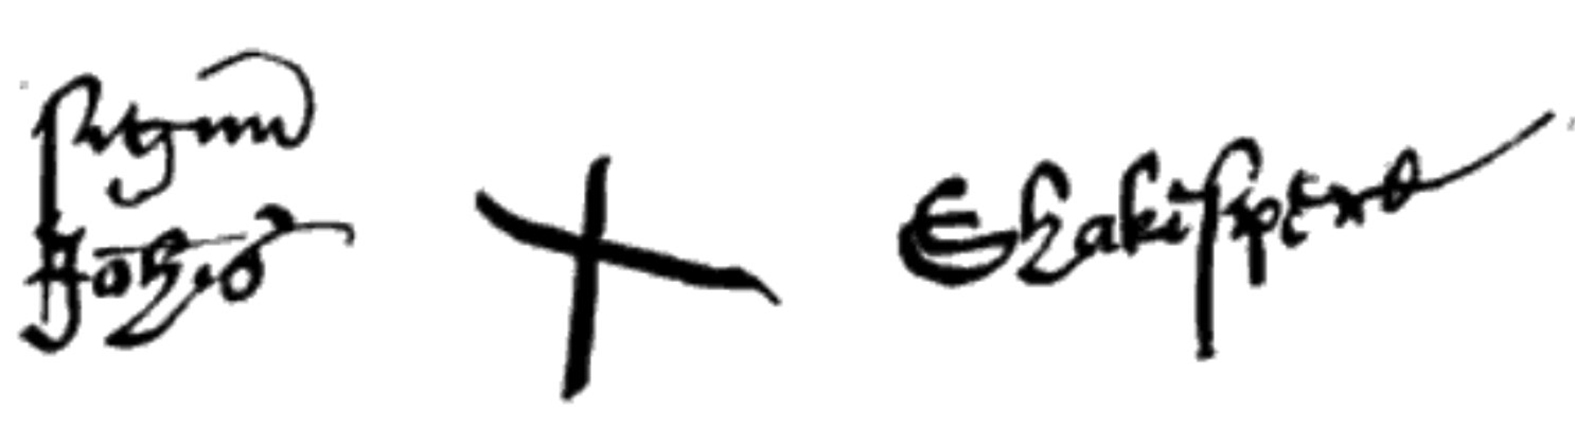 Signum
Joh̄is + Shakispere